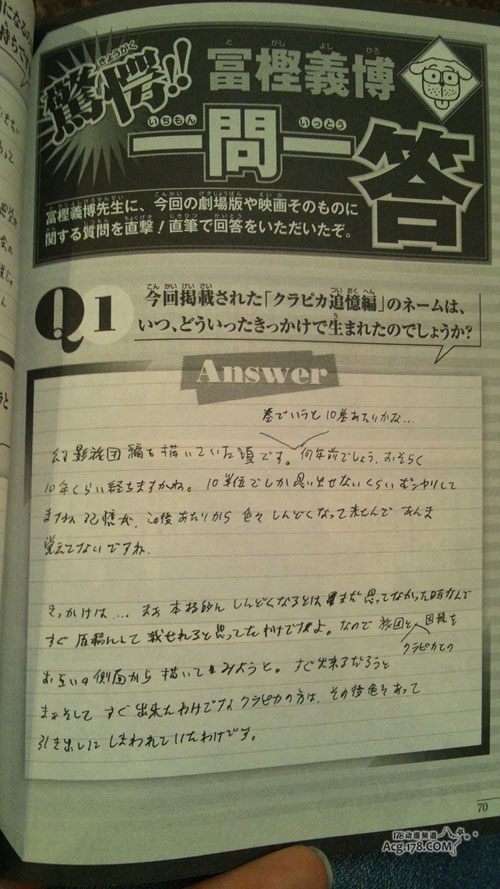 驚愕!! 冨樫義博
きょうがく と がし よし ひろ
一問一答
いちもん いっとう
冨樫義博先生に、今回の劇場版や映画そのものに
関する質問を直撃!直筆で回答をいただいたぞ。
Q1 今回掲載された「クラピカ追憶編」のネームは、
いつ、どういったきっかけで生まれたのでしょうか?
Answer
巻でいうと10巻あたりかな…
幻影旅団編を描いていた頃です。何年前でしょう、おそらく
10年くらい経ちますかね。10単位でしか思い出せないくらいボンヤリして
ますね 記憶が。この後あたりから色々しんどくなって来たんであんま
覚えてないですね。
きっかけは… まぁ本格的にしんどくなるとはまだ思ってなかった時なんで
すぐ原稿にして載せれると思ってたわけですよ。なので旅団と
クラピカとの
因縁を
お互いの側面から描いてみようと。すぐ出来るだろうと
まぁそして すぐ出来んわけでな クラピカの方は、その後色々あって
引き出しにしまわれていたわけです。
70
178动漫频道
Acg.178.COM